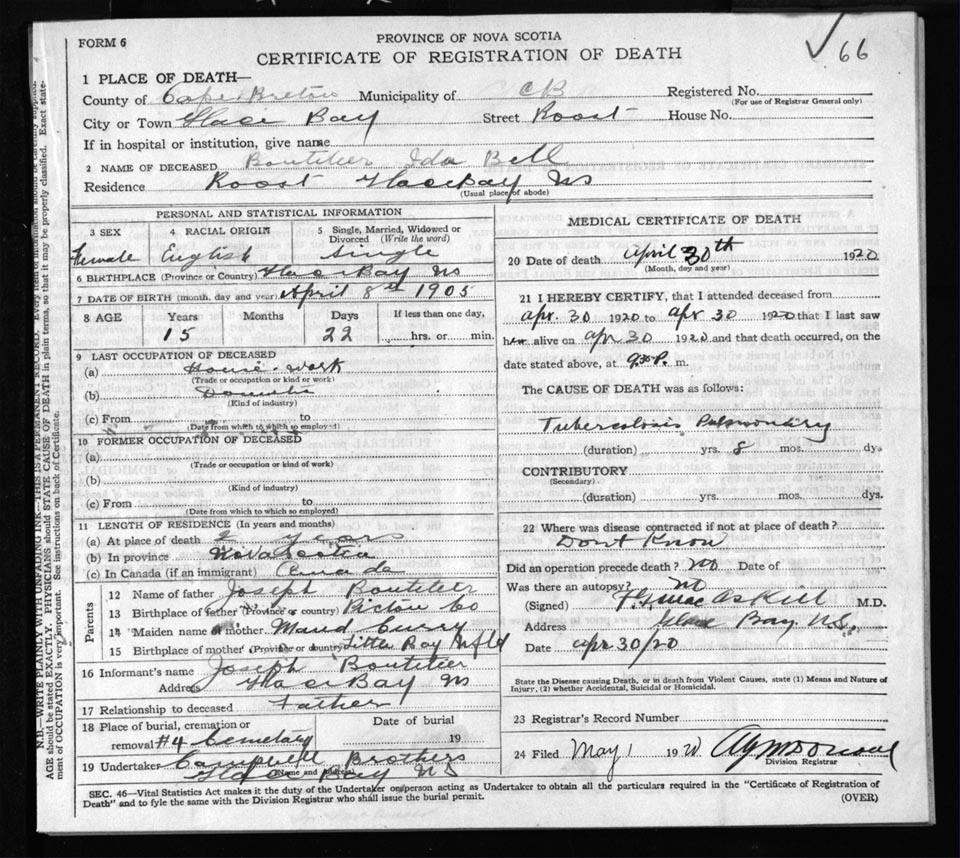 FORM 6
PROVINCE OF NOVA SCOTIA
66
CERTIFICATE OF REGISTRATION OF DEATH
1 PLACE OF DEATH—
County of Cape Breton Municipality of CB Registered No.
(For use of Registrar General only)
City or Town Glace Bay Street Roost House No.
If in hospital or institution, give name
2 NAME OF DECEASED Boutilier Ida Bell
Residence Roost Glace Bay NS
(Usual place of abode)
PERSONAL AND STATISTICAL INFORMATION
3 SEX 4 RACIAL ORIGIN 5 Single, Married, Widowed or Divorced (Write the word)
Female English Single
6 BIRTHPLACE (Province or Country) Glace Bay NS
7 DATE OF BIRTH (month, day and year) April 8th 1905
8 AGE Years Months Days If less than one day,
15 22 hrs. or min.
9 LAST OCCUPATION OF DECEASED
(a) House-work
(Trade or occupation or kind or work)
(b) Domestic
(Kind of industry)
(c) From to
(Date from which to which so employed)
10 FORMER OCCUPATION OF DECEASED
(a)
(Trade or occupation or kind of work)
(b)
(Kind of industry)
(c) From to
(Date from which to which so employed)
11 LENGTH OF RESIDENCE (In years and months)
(a) At place of death years
(b) In province Nova Scotia
(c) In Canada (if an immigrant) Canada
Parents
12 Name of father Joseph Boutilier
13 Birthplace of father (Province or country) Pictou Co
14 Maiden name of mother Maud Curry
15 Birthplace of mother (Province or country) Little Bay Nfld
16 Informant's name Joseph Boutilier
Address Glace Bay NS
17 Relationship to deceased Father
18 Place of burial, cremation or Date of burial
removal #4 Cemetary 19
19 Undertaker Campbell Brothers
Glace Bay NS
(Name and address)
MEDICAL CERTIFICATE OF DEATH
20 Date of death April 30th 1920
(Month, day and year)
21 I HEREBY CERTIFY, that I attended deceased from
Apr. 30 1920 to Apr 30 1920 that I last saw
her alive on Apr 30 1920 and that death occurred, on the
date stated above, at 9.30 P. m.
The CAUSE OF DEATH was as follows:
Tuberculosis Pulmonary
(duration) yrs. 8 mos. dys.
CONTRIBUTORY
(Secondary)
(duration) yrs. mos. dys.
22 Where was disease contracted if not at place of death?
Dont Know
Did an operation precede death? No Date of
Was there an autopsy? No
(Signed) MacAskill M.D.
Address Glace Bay NS.
Date Apr 30/20
State the Disease causing Death, or in death from Violent Causes, state (1) Means and Nature of
Injury, (2) whether Accidental, Suicidal or Homicidal.
23 Registrar's Record Number
24 Filed May 1 1920
Division Registrar
SEC. 46—Vital Statistics Act makes it the duty of the Undertaker or person acting as Undertaker to obtain all the particulars required in the "Certificate of Registration of
Death" and to fyle the same with the Division Registrar who shall issue the burial permit.
(OVER)
N.B.—WRITE PLAINLY WITH UNFADING INK—THIS IS A PERMANENT RECORD. Every item of information should be carefully supplied.
AGE should be stated EXACTLY. PHYSICIANS should STATE CAUSE OF DEATH in plain terms, so that it may be properly classified. Exact state-
ment of OCCUPATION is very important. See instructions on back of Certificate.